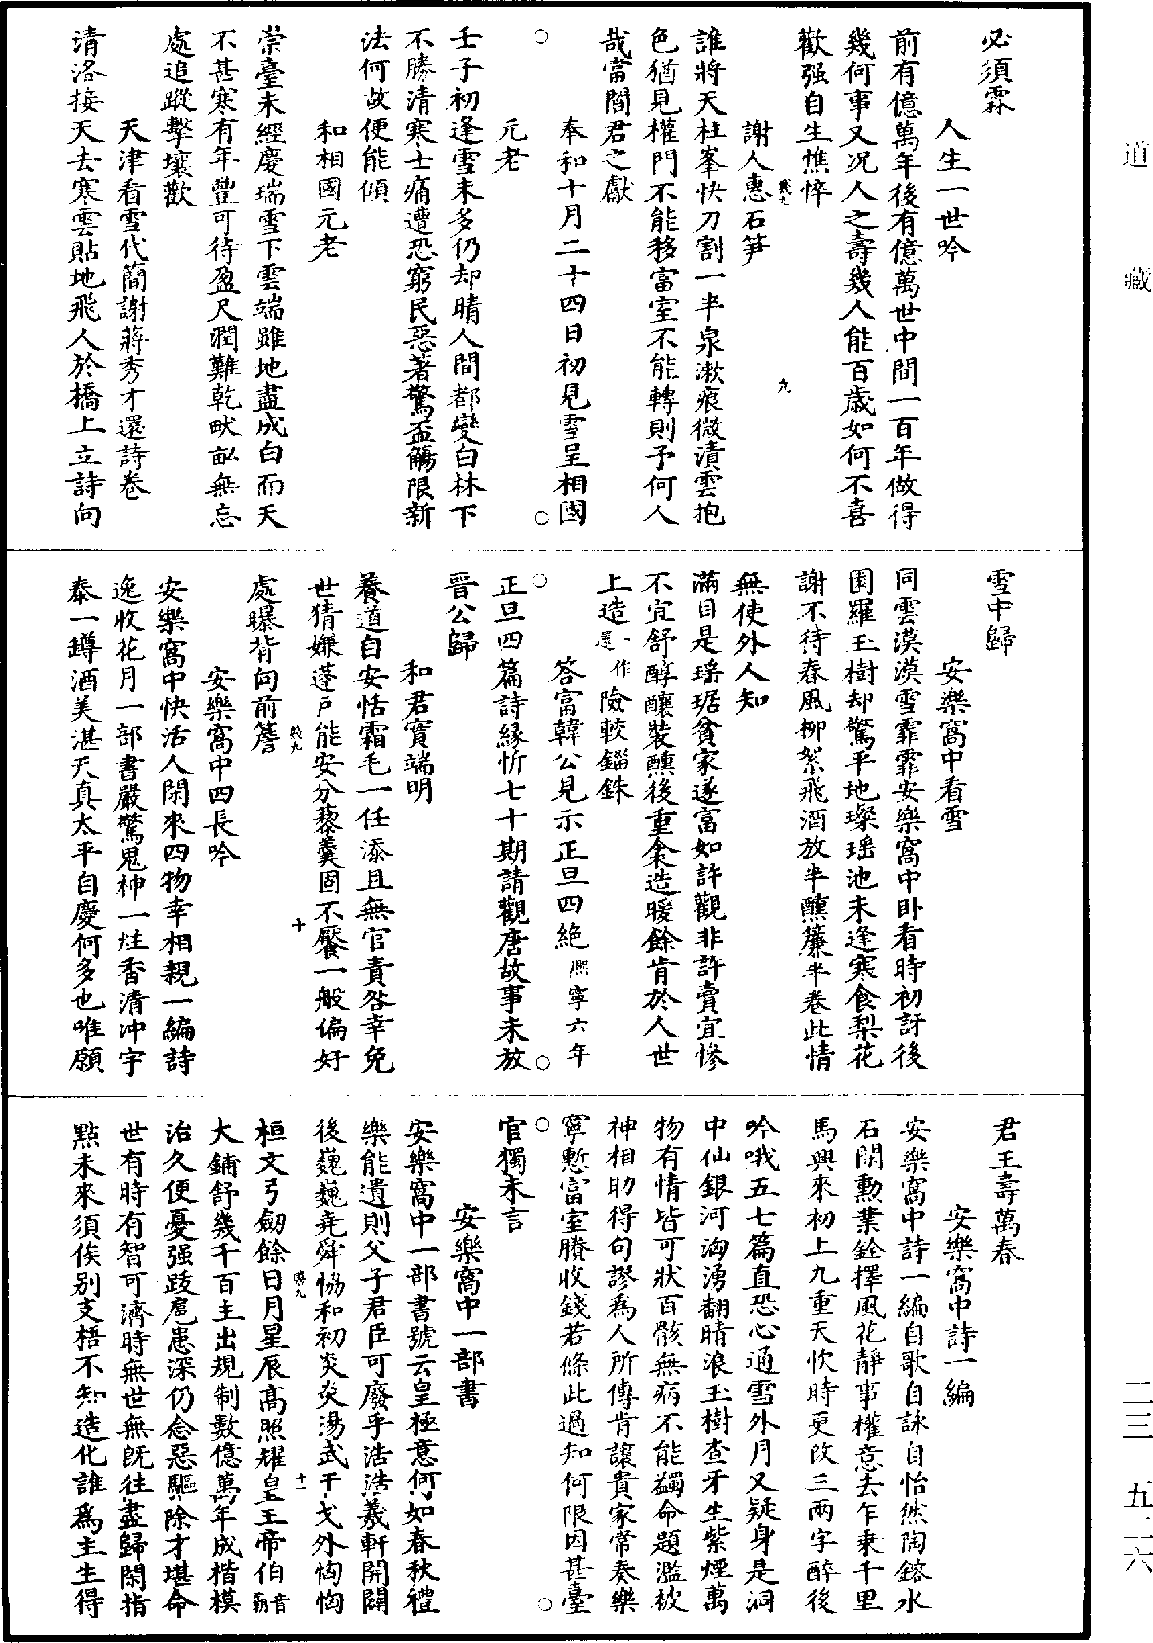 必須霖
人生一世吟
前有億萬年後有億萬世中間一百年做得
幾何事又況人之壽幾人能百歲如何不喜
歡强自生憔悴
謝人惠石笋
誰將天柱峯快刀割一半泉漱痕微漬雲抱
色猶見權門不能移富室不能轉則予何人
哉當閻君之獻
奉和十月二十四日初見雪呈相國
元老
壬子初逢雪未多仍却晴人間都變白林下
不勝清寒士痛遭恐窮民惡著驚盃觴限新
法何故便能傾
和相國元老
崇臺未經慶瑞雪下雲端雖地盡成白而天
不甚寒有年豐可待盈尺潤難乾畎畝無忘
處追蹤擊壤歡
天津看雪代簡謝蔣秀才還詩卷
清洛接天去寒雲貼地飛人於橋上立詩向
雪中歸
安樂窩中看雪
同雲漠漠雪霏霏安樂窩中卧看時初訝後
園羅玉樹却驚平地璨瑶池未逢寒食梨花
謝不待春風柳絮飛酒放半醺簾半卷此情
無使外人知
滿目是瑶琚貧家遂富如許觀非許賣宜慘
不宜舒醇釀裝醺後重衾造暖餘肯於人世
上造一作還險較錙銖
答富韓公見示正旦四絶熙寧六年
正旦四篇詩緣忻七十期請觀唐故事未放
晉公歸
和君實端明
養道自安恬霜毛一任添且無官責咎幸免
世猜嫌蓬戶能安分藜羹固不饜一般偏好
處曝背向前簷
安樂窩中四長吟
安樂窩中快活人閑來四物幸相親一編詩
逸收花月一部書嚴驚鬼神一炷香清冲宇
泰一罇酒美湛天真太平自慶何多也唯願
君王壽萬春
安樂窩中詩一編
安樂窩中詩一編自歌自詠自怡然陶鎔水
石閑勲業銓擇風花靜事權意去乍乗千里
馬興來初上九重天忺時更改三兩字醉後
吟哦五七篇直恐心通雪外月又疑身是洞
中仙銀河洶湧翻晴浪玉樹查牙生紫煙萬
物有情皆可狀百骸無病不能蠲命題濫被
神相助得句謬爲人所傳肯讓貴家常奏樂
寧慙富室賸收錢若條此過知何限因甚臺
官獨未言
安樂窩中一部書
安樂窩中一部書號云皇極意何如春秋禮
樂能遺則父子君臣可廢乎浩浩羲軒開闢
後巍巍堯舜恊和初炎炎湯武干戈外恟恟
桓文弓劒餘日月星辰高照耀皇王帝伯音霸
大鋪舒幾千百主出規制數億萬年成楷模
治久便憂强跋扈患深仍念惡驅除才堪命
世有時有智可濟時無世無既往盡歸閑指
點未來須俟别支梧不知造化誰爲主生得
道藏
二三 五二六